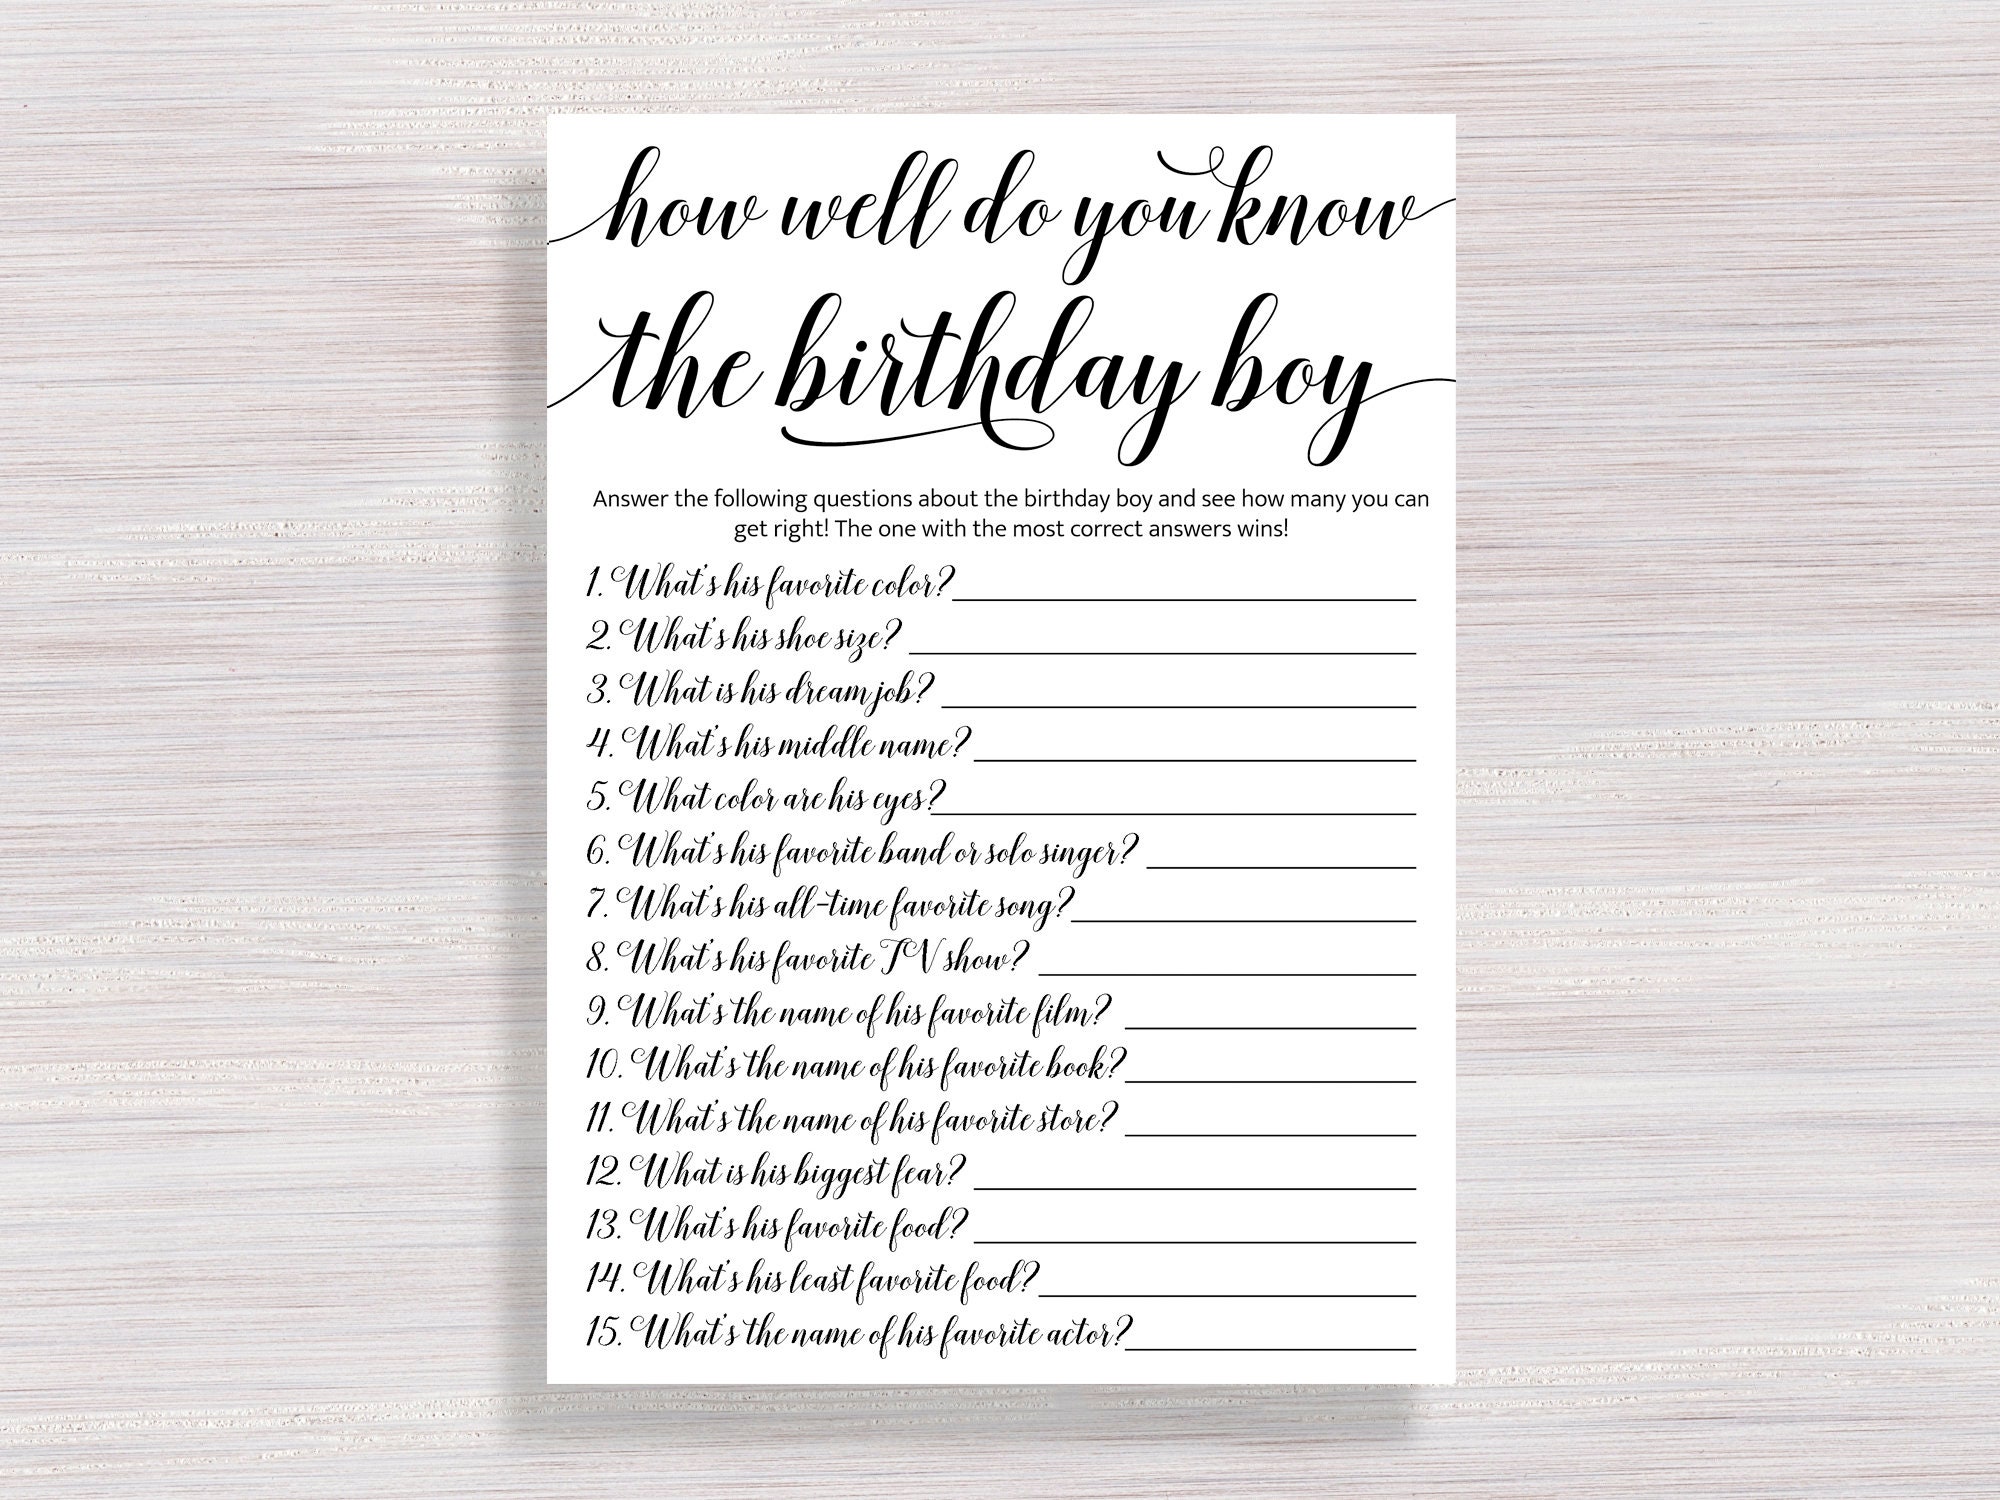 how well do you know
the birthday boy
Answer the following questions about the birthday boy and see how many you can
get right! The one with the most correct answers wins!
1. What's his favorite color?
2. What's his shoe size?
3. What is his dream job?
4. What's his middle name?
5. What color are his eyes?
6. What's his favorite band or solo singer?
7. What's his all-time favorite song?
8. What's his favorite TV show?
9. What's the name of his favorite film?
10. What's the name of his favorite book?
11. What's the name of his favorite store?
12. What is his biggest fear?
13. What's his favorite food?
14. What's his least favorite food?
15. What's the name of his favorite actor?